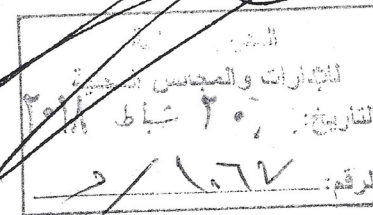 للإدارات والمجالس المحلية
التاريخ: ٢٠ شباط ٢٠١٨
الرقم: ١٠٦٧ / د